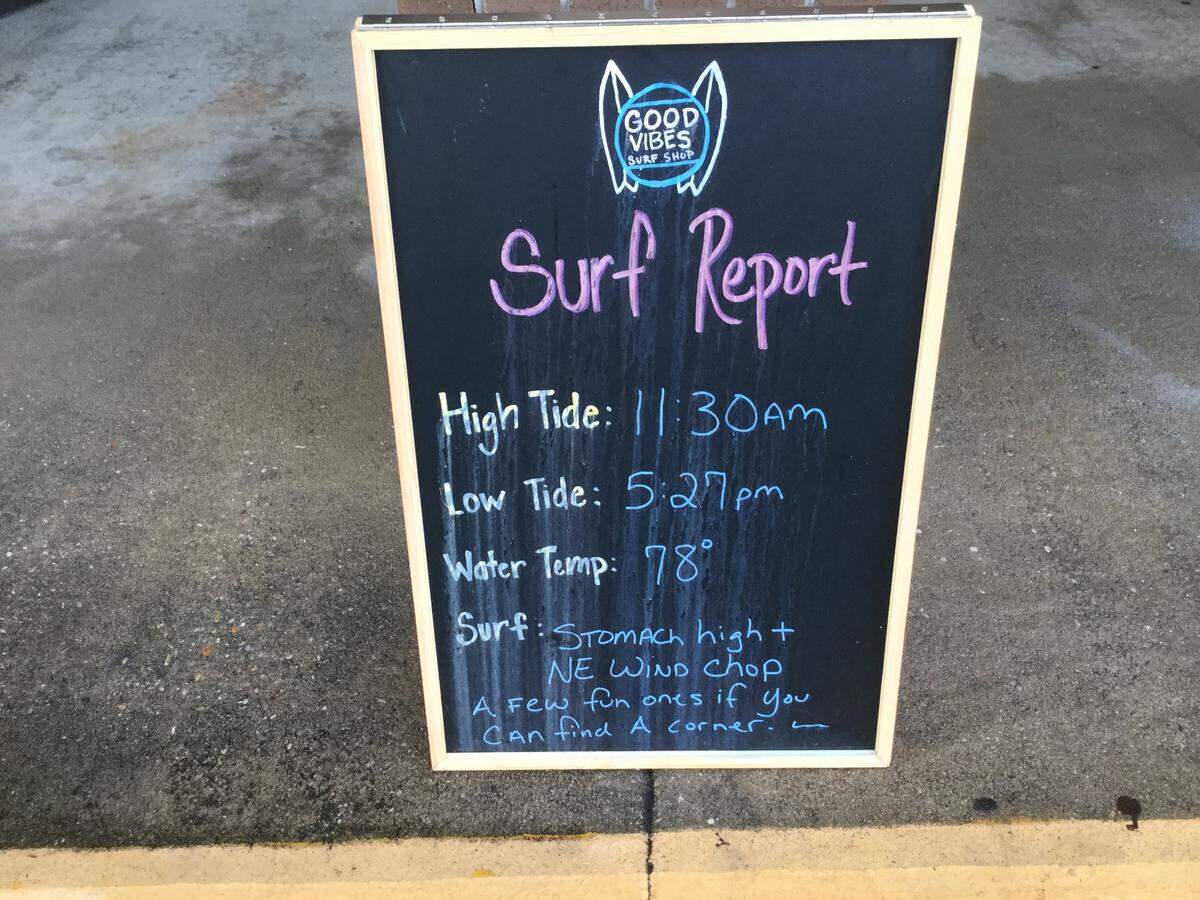 GOOD
VIBES
SURF SHOP
Surf Report
High Tide: 11:30AM
Low Tide: 5:27pm
Water Temp: 78°
Surf: STOMACh high +
NE WIND Chop
A FEW fun ones if You
CAN find A corner.